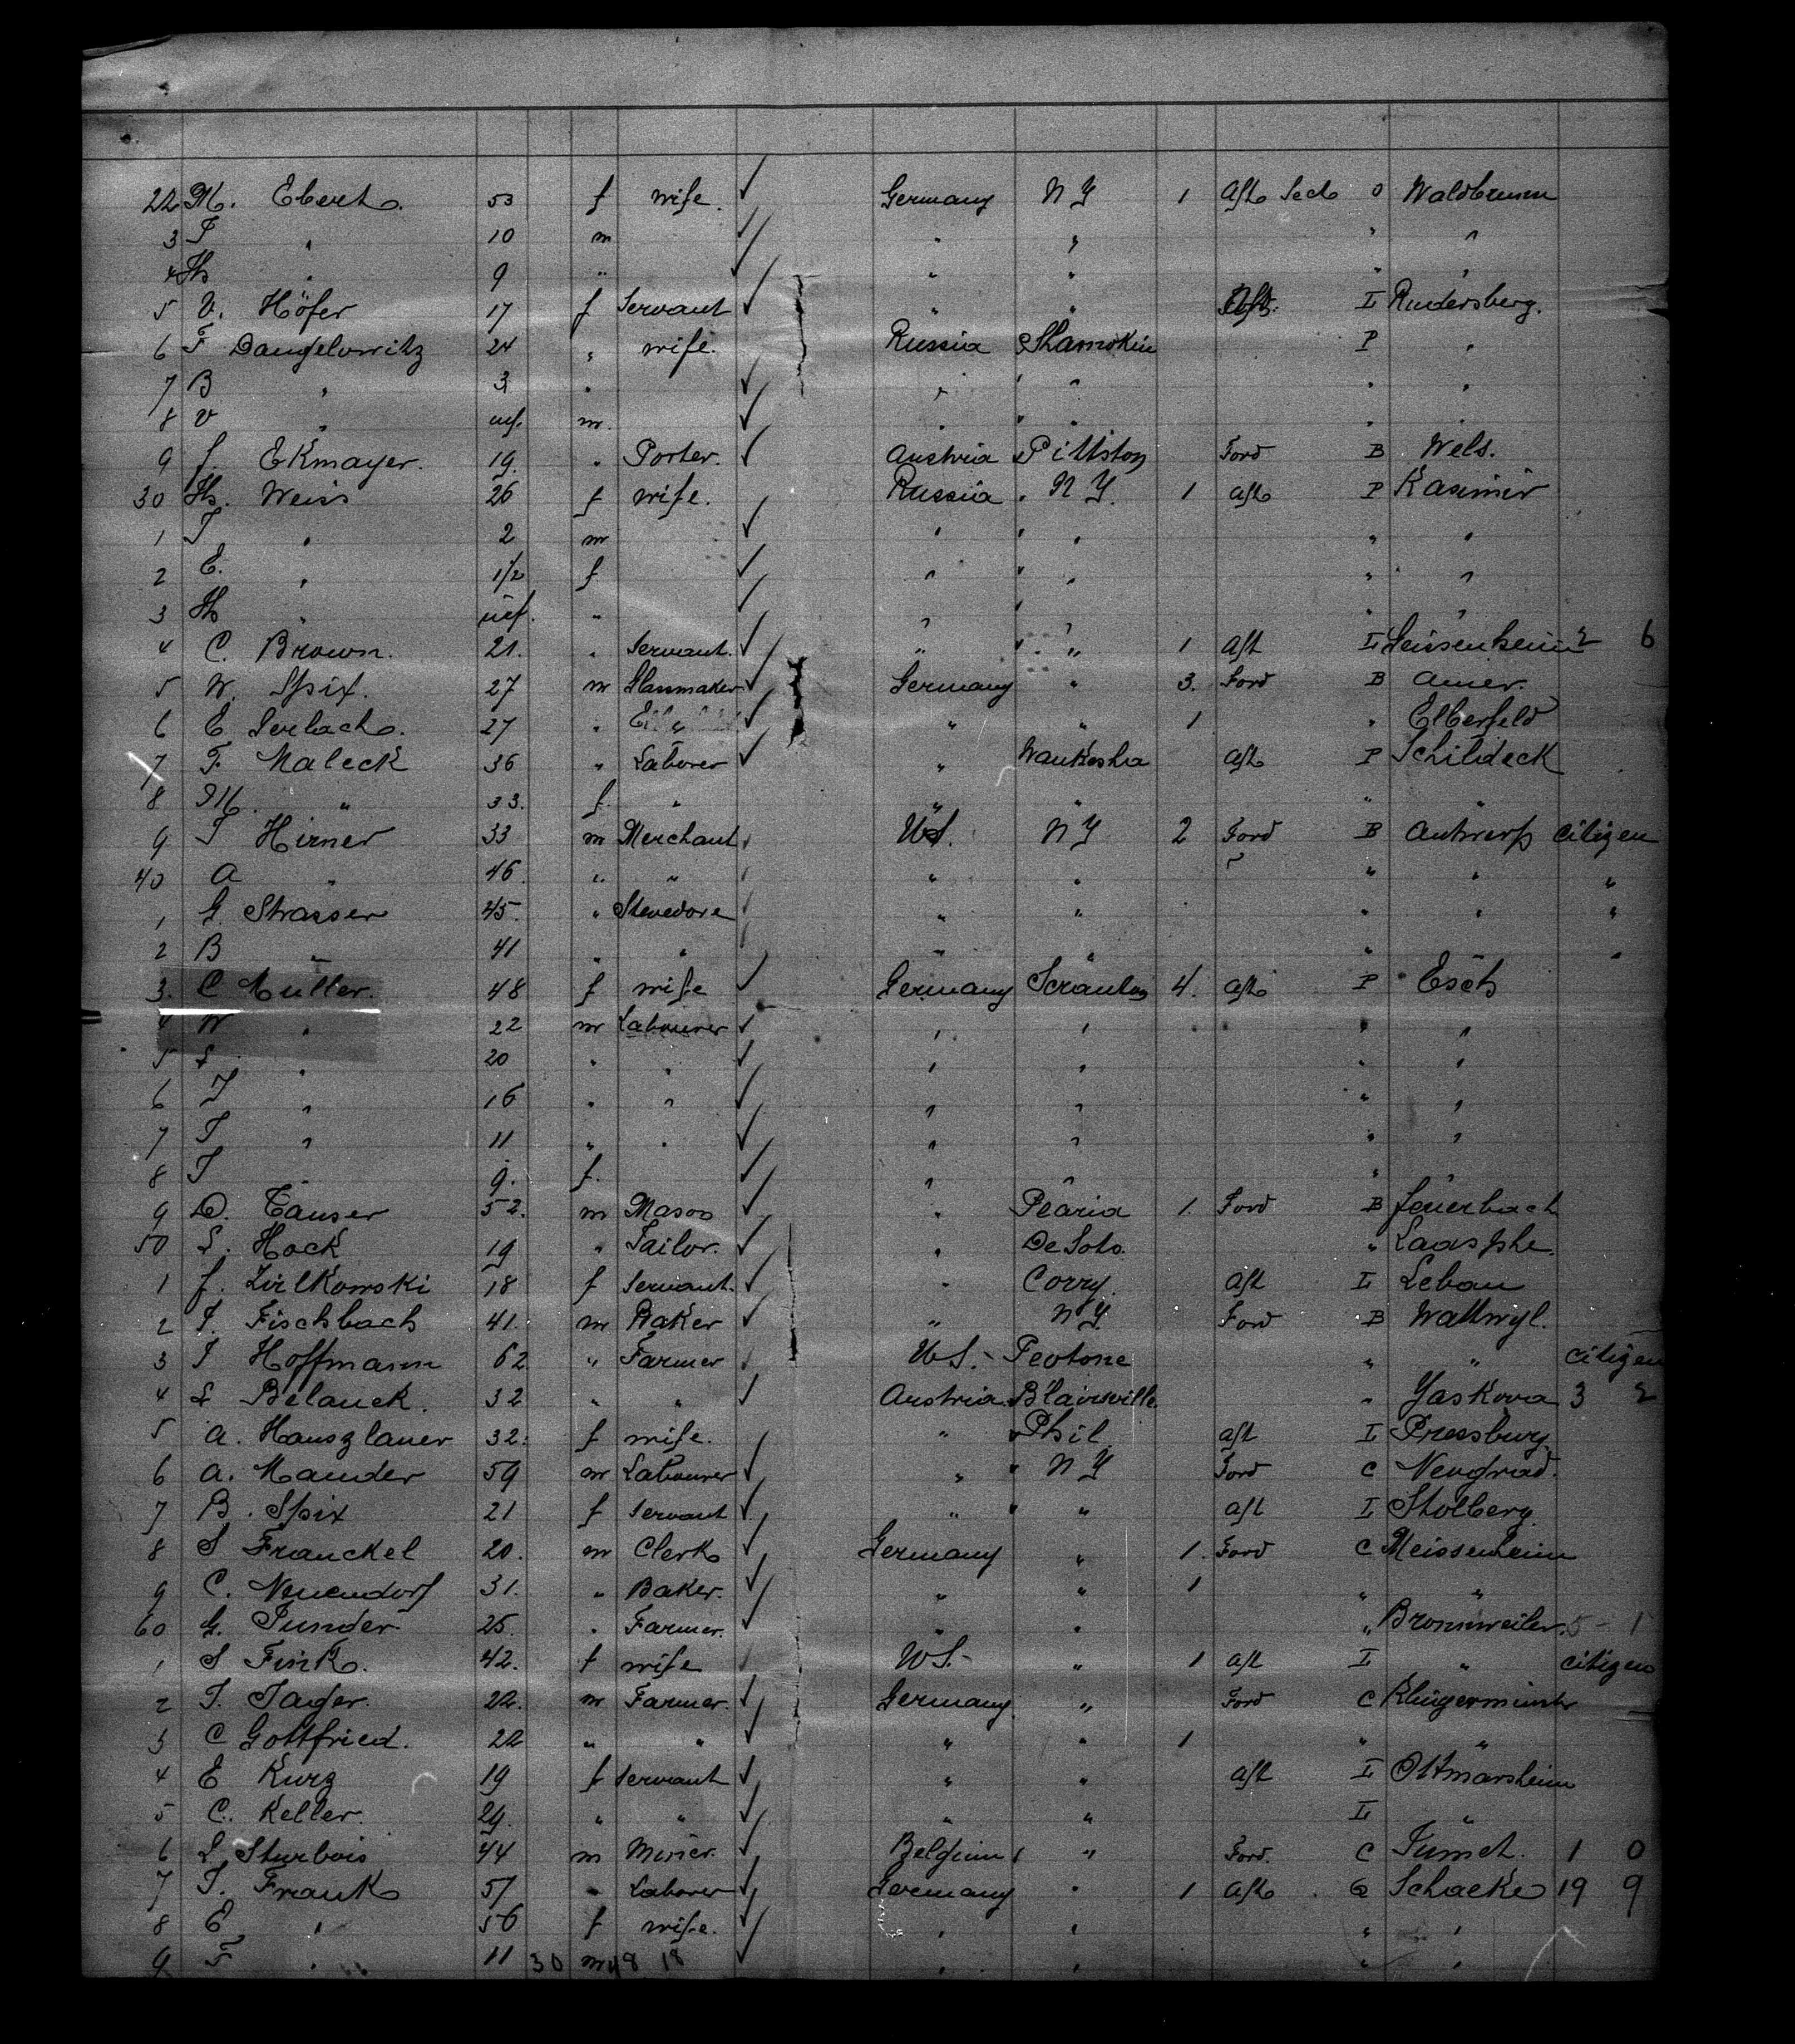 22 M. Ebert. 53 f wife. ✓ Germany N Y 1 Aft Sect O Waldbrunn
3 T " 10 m ✓ " " " "
4 Th " 9 " ✓ " " " "
5 V. Höfer 17 f Servant ✓ " " Aft. I Rudersberg.
6 F Dangelowitz 24 " wife. Russia Shamokin P "
7 B " 3 " ✓ " " " "
8 V " inf. m. ✓ " " " "
9 J. Ekmayer. 19. " Porter. ✓ Austria Pittston Ford B Wels.
30 Th. Weiss 26 f wife. Russia " N Y. 1 Aft P Kasimir
1 T " 2 m ✓ " " " "
2 E. " 1/2 f ✓ " " " "
3 Th " inf. " ✓ " " " "
4 C. Brown. 21. " Servant. ✓ " " 1 Aft I 2 6
5 W. Spix. 27 m Glassmaker ✓ Germany " 3. Ford B Amer.
6 E Serbach. 27 " ✓ " " 1 " Elberfeld
7 F. Maleck 36 " Laborer ✓ " Waukesha Aft P Schildeck
8 M. " 33. f. " " " " "
9 T Hirner 33 m Merchant ✓ U.S. N Y 2 Ford B Antwerp citizen
40 A " 46. " " ✓ " " " " " "
1 G Strasser 45. " Stevedore ✓ " " " " "
2 B " 41 " " " " " "
3. C Muller. 48 f wife ✓ Germany Scranton 4. Aft P Esch
4 W " 22 m Labourer ✓ " " " "
5 L " 20 " " ✓ " " " "
6 J " 16 " " ✓ " " " "
7 T " 11 " " ✓ " " " "
8 T " 9. f. ✓ " " " "
9 D. Tauser 52. m Mason ✓ " Pearia 1. Ford B Feuerbach
50 L. Hock 19 " Tailor. ✓ " De Soto. " Laasphe.
1 J. Zielkowski 18 f Servant. ✓ " Corry. Aft I Lebau
2 T. Fischbach 41. m Baker ✓ " N Y. Ford B Wattwyl.
3 T Hoffmann 62 " Farmer ✓ U.S. - Peotone " " citizen
4 L Belanek. 32 " " ✓ Austria. Blairsville. " Jaskova 3 2
5 A. Hauszlauer 32. f wife. " Phil. Aft I Pressburg.
6 A. Mauder 59 m Labourer ✓ " " N Y Ford C Neugrad.
7 B. Spix 21 f Servant ✓ " " " Aft I Stolberg.
8 S Franckel 20. m Clerk ✓ Germany " 1. Ford C Meissenheim
9 C. Neuendorf 31. " Baker. ✓ " " 1 " "
60 G. Junder 25. " Farmer. ✓ " " " Bronnweiler. 5 - 1
1 S Fink. 42. f wife ✓ U.S. - " 1 Aft I " citizen
2 J. Jager. 22. m Farmer. ✓ Germany. " Ford C Klingermünster
3 C Gottfried. 22 " " ✓ " " 1 " "
4 E Kurz 19 f Servant ✓ " " Aft I Ottmarsheim
5 C. Keller. 29. " " ✓ " " I "
6 L. Sturbois 44 m Miner. ✓ Belgium " Ford. C Jumet. 1 0
7 J. Frank 51 " Laborer ✓ Germany " 1 Aft Q Schacke 19 9
8 E " 56 f wife. ✓ " " " "
9 F " 11 30 m 48 18 ✓ " " " "